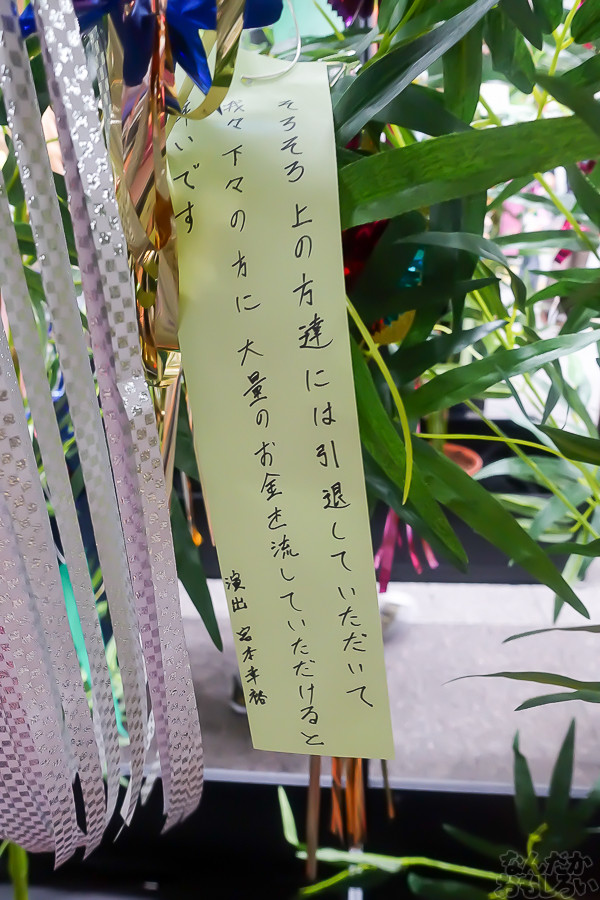 そろそろ上の方達には引退していただいて
我々下々の方に大量のお金を流していただけると
幸いです
演出 宮本幸裕
なんだか
おもしろい